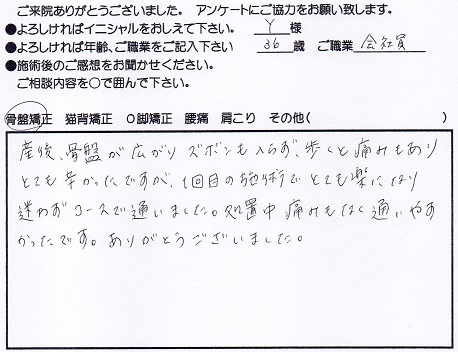 ご来院ありがとうございました。 アンケートにご協力をお願い致します。
●よろしければイニシャルをおしえて下さい。 Y 様
●よろしければ年齢、ご職業をご記入下さい 36 歳 ご職業 会社員
●施術後のご感想をお聞かせください。
ご相談内容を○で囲んで下さい。
骨盤矯正 猫背矯正 O脚矯正 腰痛 肩こり その他( )
産後、骨盤が広がりズボンも入らず、歩くと痛みもあり
とても辛かったですが、1回目の施術でとても楽になり
迷わずコースで通いました。処置中痛みもなく通いやす
かったです。ありがとうございました。